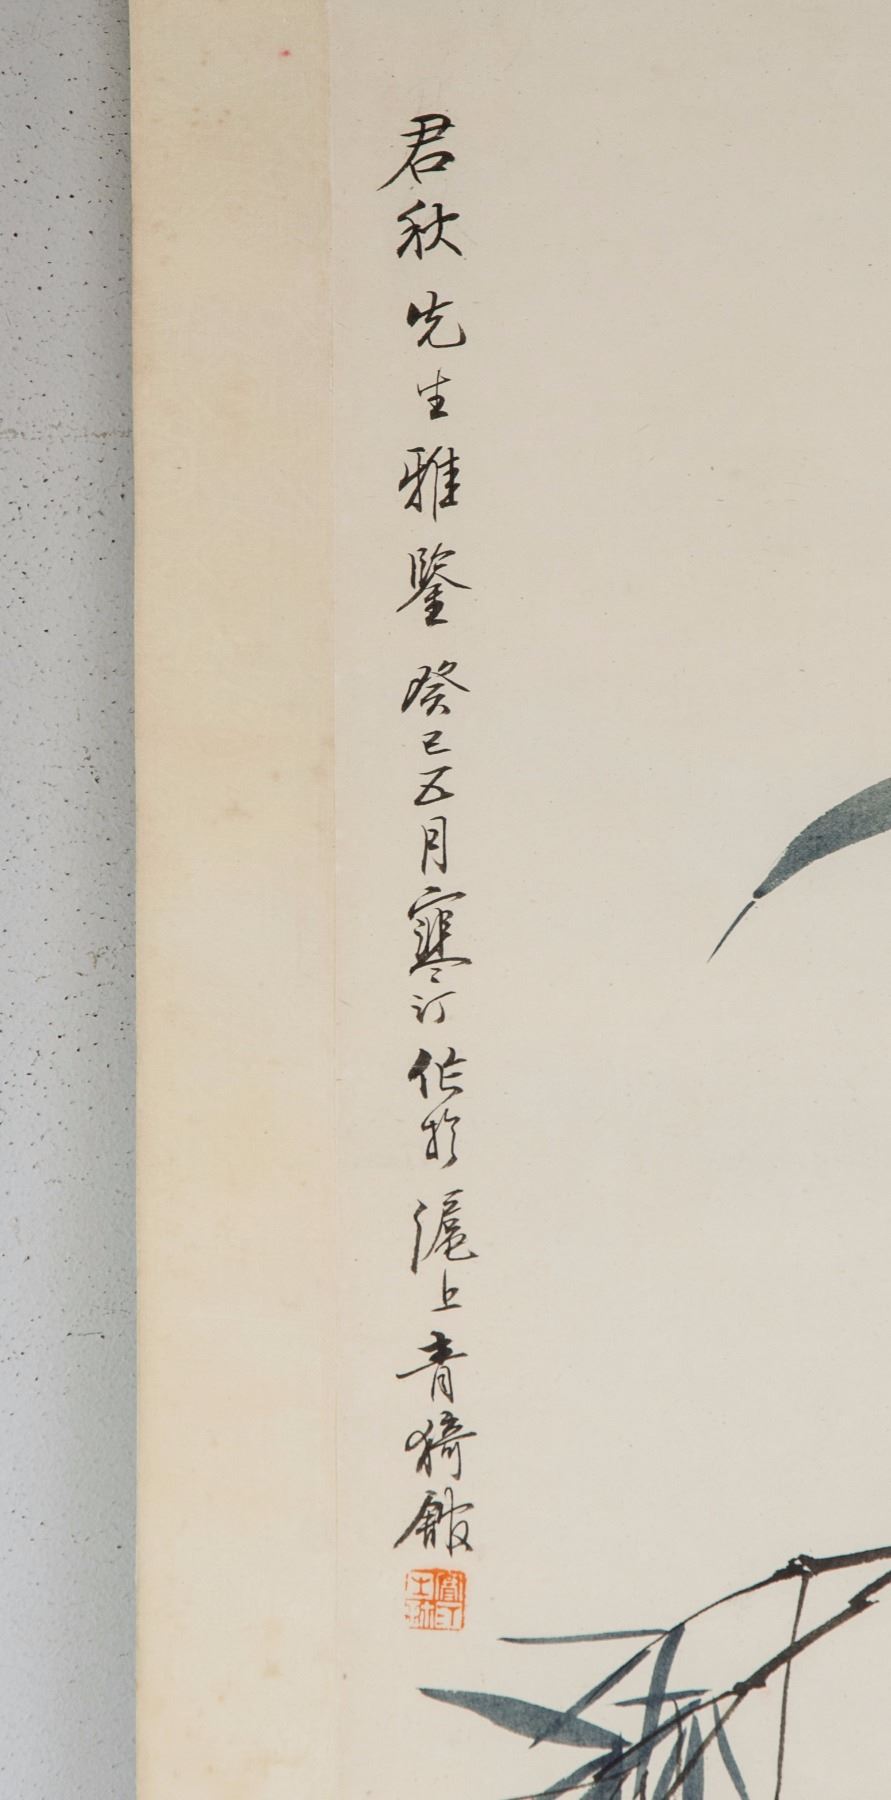 君秋先生雅鑒癸巳五月寒汀作於滬上青猗館